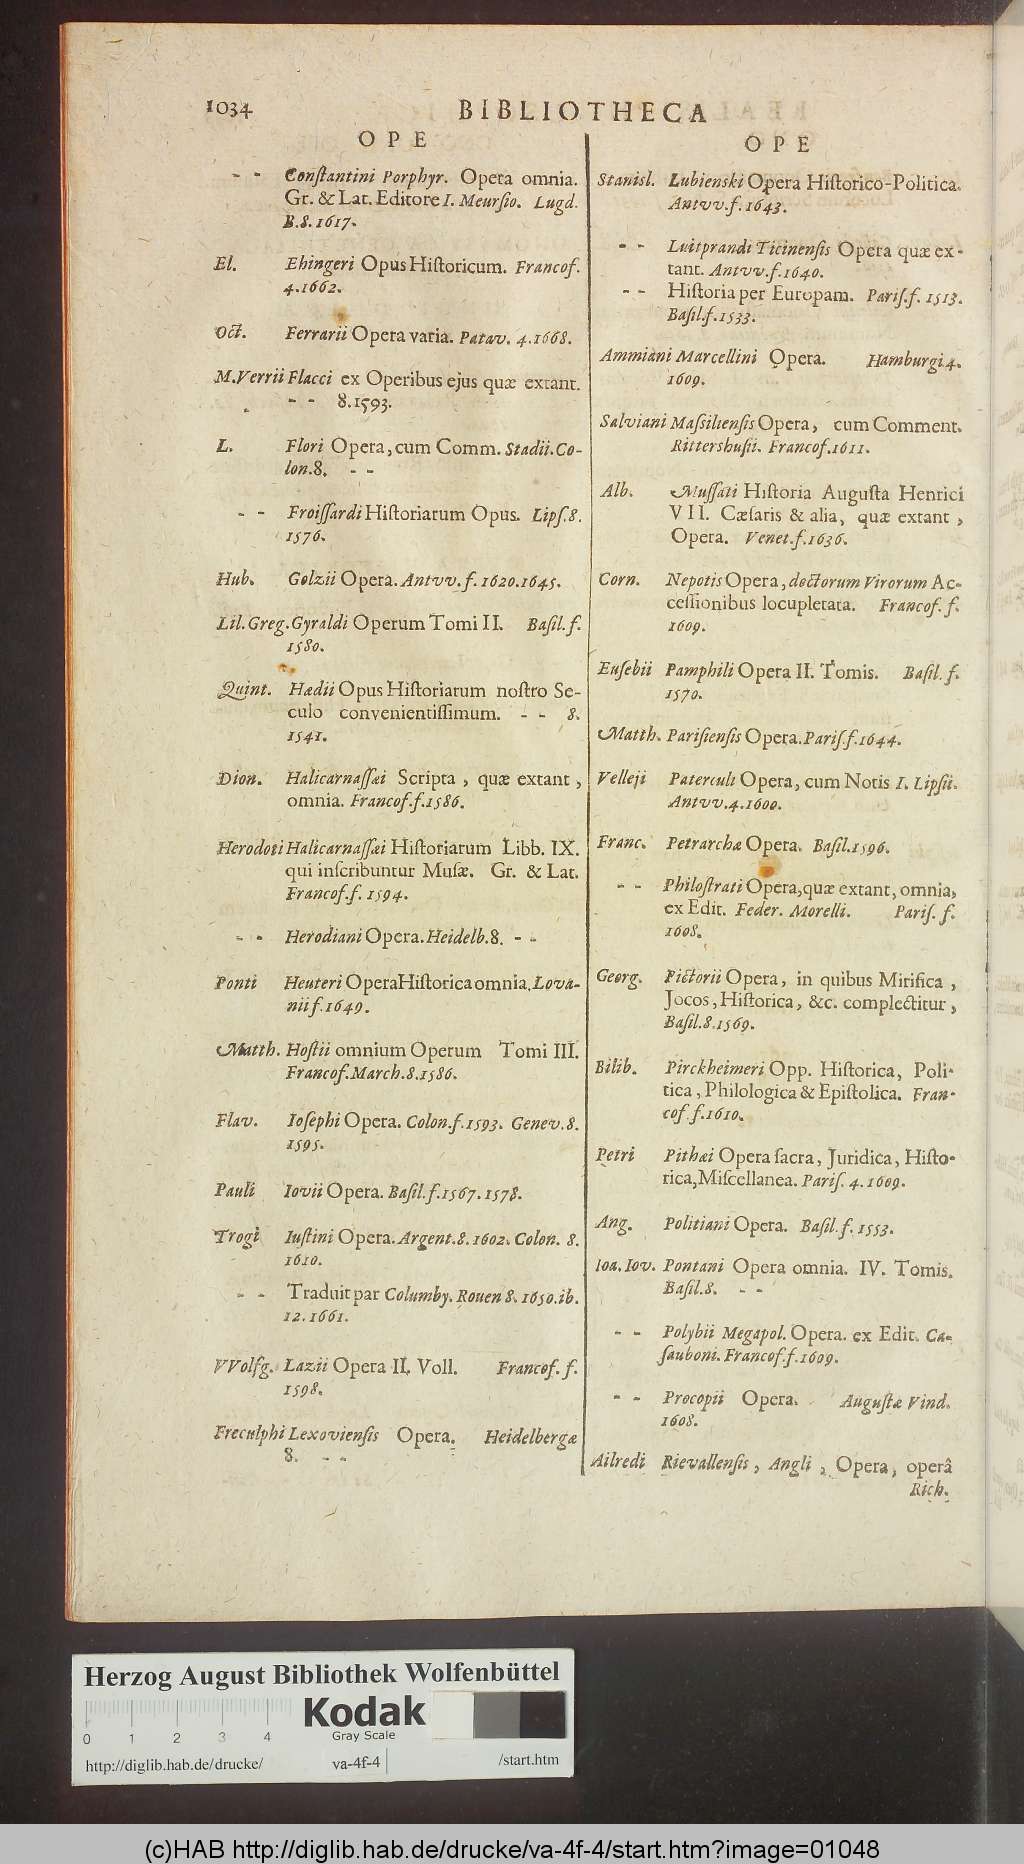 1034 BIBLIOTHECA
OPE
- - Conſtantini Porphyr. Opera omnia.
Gr. & Lat. Editore I. Meurſio. Lugd.
B.8.1617.
El. Ehingeri Opus Hiſtoricum. Francof.
4.1662.
Oct. Ferrarii Opera varia. Patav. 4.1668.
M.Verrii Flacci ex Operibus ejus quæ extant.
- - 8.1593.
L. Flori Opera, cum Comm. Stadii. Co-
lon.8. - -
- - Froiſſardi Hiſtoriarum Opus. Lipſ.8.
1576.
Hub. Golzii Opera. Antvv.f.1620.1645.
Lil.Greg.Gyraldi Operum Tomi II. Baſil.f.
1580.
Quint. Hædii Opus Hiſtoriarum noſtro Se-
culo convenientiſſimum. - - 8.
1541.
Dion. Halicarnaſſæi Scripta, quæ extant,
omnia. Francof.f.1586.
Herodoti Halicarnaſſæi Hiſtoriarum Libb. IX.
qui inſcribuntur Muſæ. Gr. & Lat.
Francof.f.1594.
- - Herodiani Opera. Heidelb.8. - -
Ponti Heuteri Opera Hiſtorica omnia. Lova-
nii f.1649.
Matth. Hoſtii omnium Operum Tomi III.
Francof.March.8.1586.
Flav. Ioſephi Opera. Colon.f.1593. Genev.8.
1595.
Pauli Iovii Opera. Baſil.f.1567.1578.
Trogi Iuſtini Opera. Argent.8.1602. Colon. 8.
1610.
- - Traduit par Columby. Rouen 8.1650.ib.
12.1661.
VVolfg. Lazii Opera II. Voll. Francof. f.
1598.
Freculphi Lexovienſis Opera. Heidelbergæ
8. - -
OPE
Stanisl. Lubienski Opera Hiſtorico-Politica.
Antvv.f.1643.
- - Luitprandi Ticinenſis Opera quæ ex-
tant. Antvv.f.1640.
- - Hiſtoria per Europam. Pariſ.f. 1513.
Baſil.f.1533.
Ammiani Marcellini Opera. Hamburgi 4.
1609.
Salviani Maſſilienſis Opera, cum Comment.
Rittershuſii. Francof.1611.
Alb. Muſſati Hiſtoria Auguſta Henrici
VII. Cæſaris & alia, quæ extant,
Opera. Venet.f.1636.
Corn. Nepotis Opera, doctorum Virorum Ac-
ceſſionibus locupletata. Francof. f.
1609.
Euſebii Pamphili Opera II. Tomis. Baſil. f.
1570.
Matth. Pariſienſis Opera. Pariſ.f.1644.
Velleji Paterculi Opera, cum Notis I. Lipſii.
Antvv.4.1600.
Franc. Petrarchæ Opera. Baſil.1596.
- - Philoſtrati Opera, quæ extant, omnia,
ex Edit. Feder. Morelli. Pariſ. f.
1608.
Georg. Pictorii Opera, in quibus Mirifica,
Jocos, Hiſtorica, &c. complectitur,
Baſil.8.1569.
Bilib. Pirckheimeri Opp. Hiſtorica, Poli-
tica, Philologica & Epiſtolica. Fran-
cof.f.1610.
Petri Pithæi Opera ſacra, Juridica, Hiſto-
rica, Miſcellanea. Pariſ. 4.1609.
Ang. Politiani Opera. Baſil.f.1553.
Ioa.Iov. Pontani Opera omnia. IV. Tomis.
Baſil.8. - -
- - Polybii Megapol. Opera. ex Edit. Ca-
ſauboni. Francof.f.1609.
- - Procopii Opera. Auguſtæ Vind.
1608.
Ailredi Rievallenſis, Angli, Opera, operâ
Rich.
Herzog August Bibliothek Wolfenbüttel
Kodak
Gray Scale
0 1 2 3 4
http://diglib.hab.de/drucke/ va-4f-4 /start.htm
(c)HAB http://diglib.hab.de/drucke/va-4f-4/start.htm?image=01048